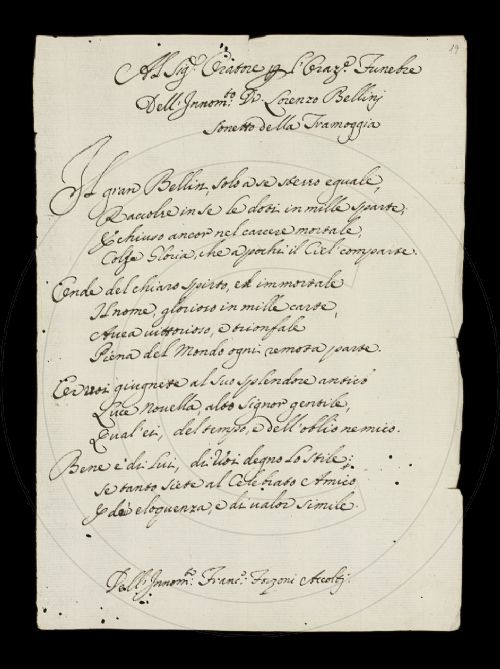 19
Al Sig.r Oratore p l'Oraz.e Funebre
Dell'Innom.to D.r Lorenzo Bellini
Sonetto della Tramoggia
Il gran Bellin, solo a se stesso eguale,
Raccolse in se le doti in mille sparte,
E chiuso ancor nel carcere mortale,
Colse Gloria, che a pochi il Ciel comparte.
Onde del chiaro spirto, ed immortale
Il nome, glorioso in mille carte,
Avea vittorioso, e trionfale
Piena del Mondo ogni remota parte.
Or voi giugnete al suo splendore antico
Luce novella, alto Signor gentile,
Qual'ei, del tempo, e dell'oblio nemico.
Bene è di Lui, di Voi degno lo stile;
se tanto siete al Celebrato Amico
E di eloquenza, e di valor simile.
Dell'Innom.to Franc.o Forzoni Accolti.